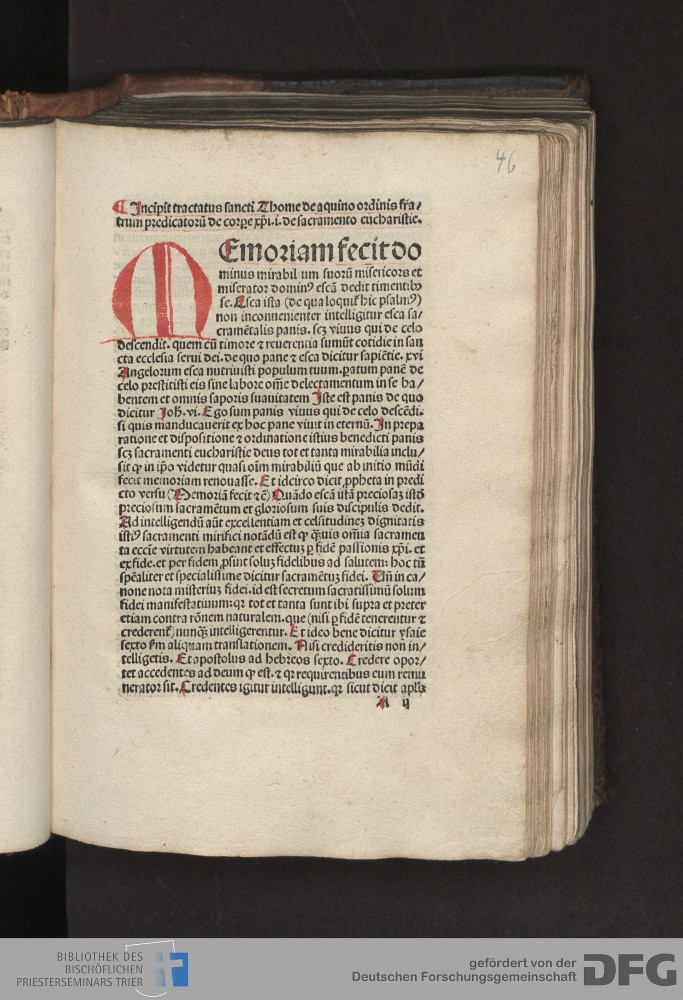 46
Incipit tractatus sancti Thome de aquino ordinis fra/
trum predicatorū de corpe xp̄i.i. de sacramento eucharistie.
MEmoriam fecit do
minus mirabilium suorū misericors et
miserator dominꝰ escā dedit timentibꝰ
se. Esca ista (de qua loquit̄ hic psalmꝰ)
non inconuenienter intelligitur esca sa/
cramētalis panis. scꝫ viuus qui de celo
descendit. quem cū timore ⁊ reuerentia sumūt cotidie in san
cta ecclesia serui dei. de quo pane ⁊ esca dicitur sapiētie. xvi
Angelorum esca nutriuisti populum tuum. ꝑatum panē de
celo prestitisti eis sine labore om̄e delectamentum in se ha/
bentem et omnis saporis suauitatem Iste est panis de quo
dicitur Joh̄. vi. Ego sum panis viuus qui de celo descēdi.
si quis manducauerit ex hoc pane viuit in eternū. In prepa
ratione et dispositione ⁊ ordinatione istius benedicti panis
scꝫ sacramenti eucharistie deus tot et tanta mirabilia inclu/
sit ꝙ in ip̄o videtur quasi oīm mirabiliū que ab initio mūdi
fecit memoriam renouasse. Et idcirco dicit ꝓpheta in predi
cto versu (Memoriā fecit ⁊c̄) Quādo escā istā preciosaꝫ istō
preciosum sacramētum et gloriosum suis discipulis dedit.
Ad intelligendū aūt excellentiam et celsitudineꝫ dignitatis
istiꝰ sacramenti mirifici notādū est ꝙ q̄uis om̄ia sacramen
ta eccīe virtutem habeant et effectuꝫ ꝑ fidē passionis xp̄i. et
ex fide. et per fidem ꝓsint soluꝫ fidelibus ad salutem: hoc tn̄
spēaliter et specialissime dicitur sacramētuꝫ fidei. Vn̄ in ca/
none nota misteriuꝫ fidei. id est secretum sacratissimū solum
fidei manifestatiuum: qꝛ tot et tanta sunt ibi supra et preter
etiam contra rōnem naturalem. que (nisi ꝑ fidē tenerentur ⁊
crederent̄) nunqꝫ intelligerentur. Et ideo bene dicitur ysaie
sexto scd̄m aliquam translationem. Nisi credideritis non in/
telligetis. Et apostolus ad hebreos sexto. Credere opor/
tet accedentes ad deum ꝙ est. ⁊ qꝛ requirentibus eum remu
nerator sit. Credentes igitur intelligunt. qꝛ sicut dicit apl̄s
A ij
BIBLIOTHEK DES
BISCHÖFLICHEN
PRIESTERSEMINARS TRIER
gefördert von der
Deutschen Forschungsgemeinschaft
DFG